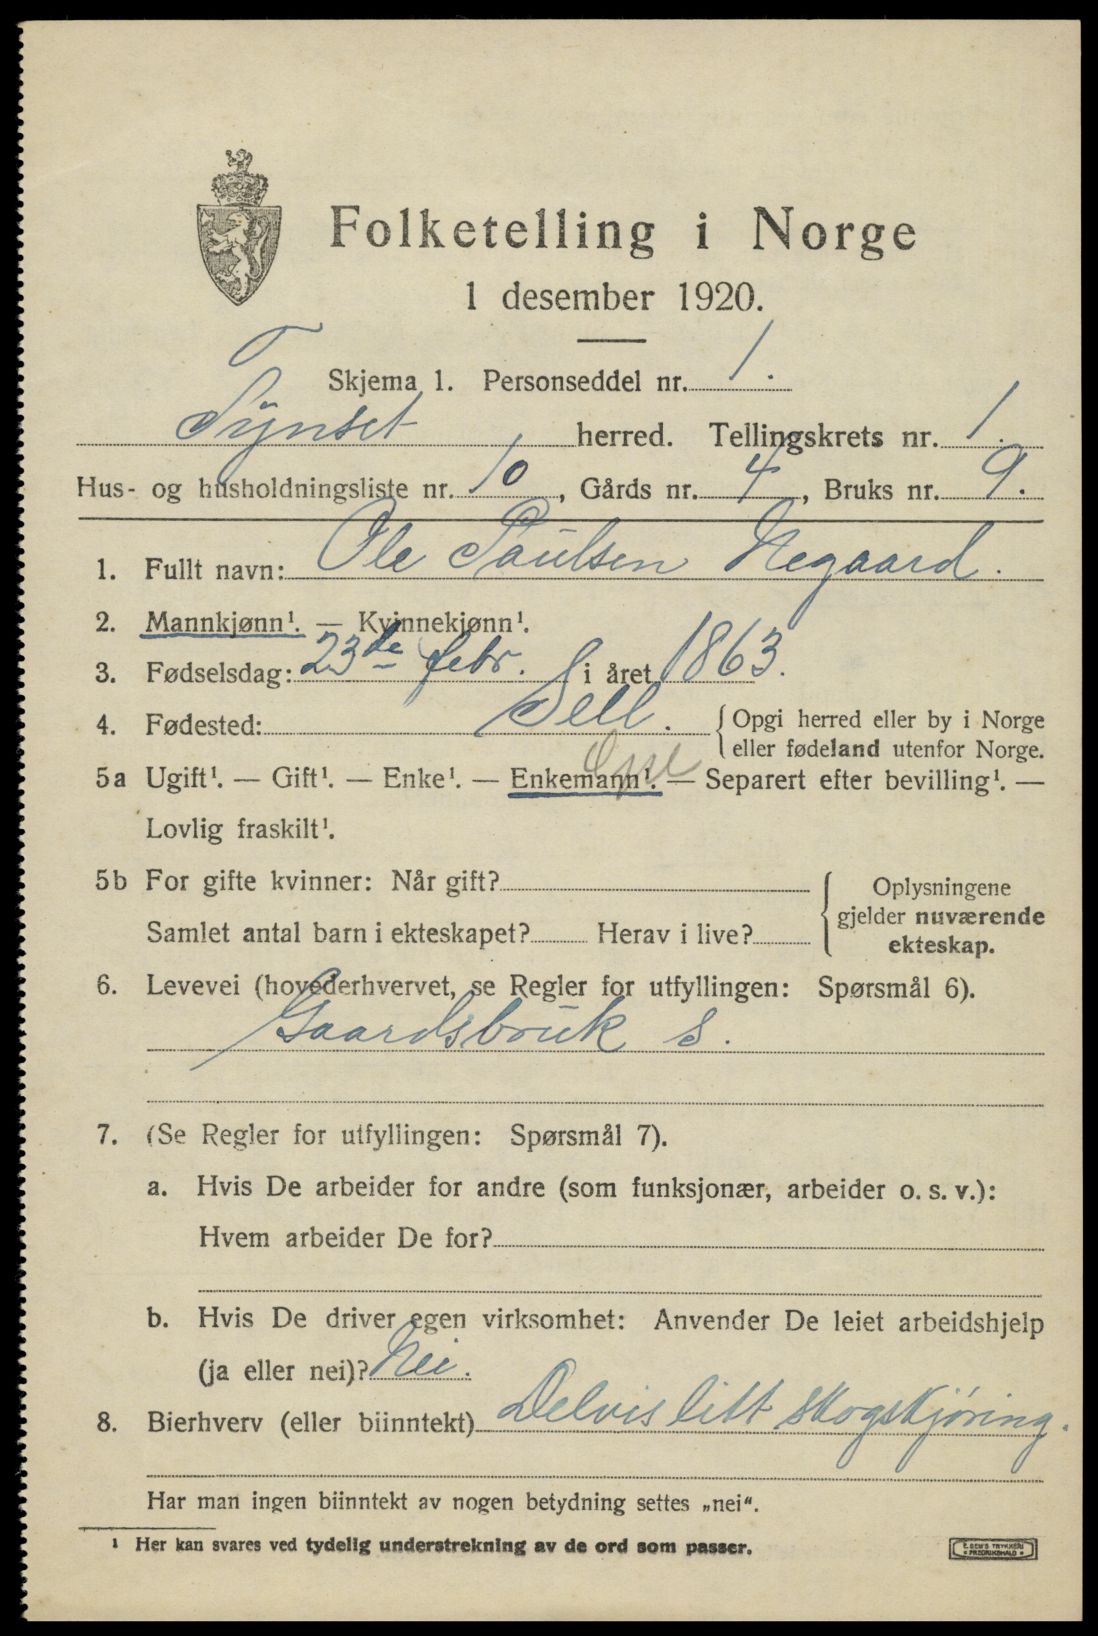 Folketelling i Norge
1 desember 1920.
Skjema 1. Personseddel nr. 1.
Tynset herred. Tellingskrets nr. 1.
Hus- og husholdningsliste nr. 10, Gårds nr. 4, Bruks nr. 9.
1. Fullt navn: Ole Paulsen Negaard.
2. Mannkjønn¹. — Kvinnekjønn¹.
3. Fødselsdag: 23de febr. i året 1863.
4. Fødested: Sell. {Opgi herred eller by i Norge
eller fødeland utenfor Norge.
5a Ugift¹. — Gift¹. — Enke¹. — Enkemann¹. — Separert efter bevilling¹. —
Lovlig fraskilt¹.
5b For gifte kvinner: Når gift?
Samlet antal barn i ekteskapet? Herav i live?
Oplysningene
gjelder nuværende
ekteskap.
6. Levevei (hovederhvervet, se Regler for utfyllingen: Spørsmål 6).
Gaardsbruk s.
7. (Se Regler for utfyllingen: Spørsmål 7).
a. Hvis De arbeider for andre (som funksjonær, arbeider o. s. v.):
Hvem arbeider De for?
b. Hvis De driver egen virksomhet: Anvender De leiet arbeidshjelp
(ja eller nei)? Nei.
8. Bierhverv (eller biinntekt) Delvis litt skogskjøring.
Har man ingen biinntekt av nogen betydning settes „nei“.
¹ Her kan svares ved tydelig understrekning av de ord som passer.
E. SEM'S TRYKKERI
FREDRIKSHALD